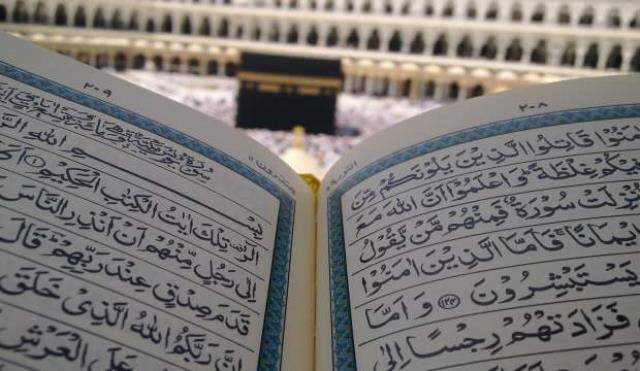 ٢٠٨
قَاتِلُوا الَّذِيْنَ يَلُوْنَكُمْ مِّنَ
غِلْظَةً وَاعْلَمُوْا اَنَّ اللّٰهَ مَعَ
سُوْرَةٌ فَمِنْهُمْ مَّنْ يَّقُوْلُ
اِيْمَانًا فَاَمَّا الَّذِيْنَ اٰمَنُوْا
يَسْتَبْشِرُوْنَ ﴿١٢٤﴾ وَاَمَّا
فَزَادَتْهُمْ رِجْسًا اِلٰى
٢٠٩
بِسْمِ اللّٰهِ
الٓرٰ تِلْكَ اٰيٰتُ الْكِتٰبِ الْحَكِيْمِ ﴿١﴾
اِلٰى رَجُلٍ مِّنْهُمْ اَنْ اَنْذِرِ النَّاسَ
قَدَمَ صِدْقٍ عِنْدَ رَبِّهِمْ قَالَ
اِنَّ رَبَّكُمُ اللّٰهُ الَّذِيْ خَلَقَ
عَلَى الْعَرْشِ